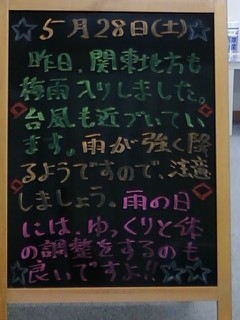 5月28日(土)
昨日、関東地方も
梅雨入りしました。
台風も近づいてい
ます。雨が強く降
るようですので、注意
しましょう。雨の日
には、ゆっくりと体
の調整をするのも
良いですよ!!